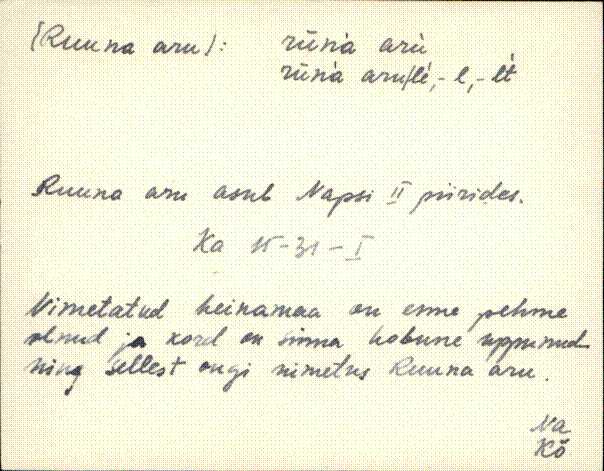 (Ruuna aru): rūna̋ arù
rūna̋ aru/lè, -l, -lt
Ruuna aru asub Napsi II piirides.
Ka 15-31-I
Nimetatud heinamaa on enne pehme
olnud ja kord on sinna hobune uppunud
ning sellest ongi nimetus Ruuna aru.
Na
Kõ